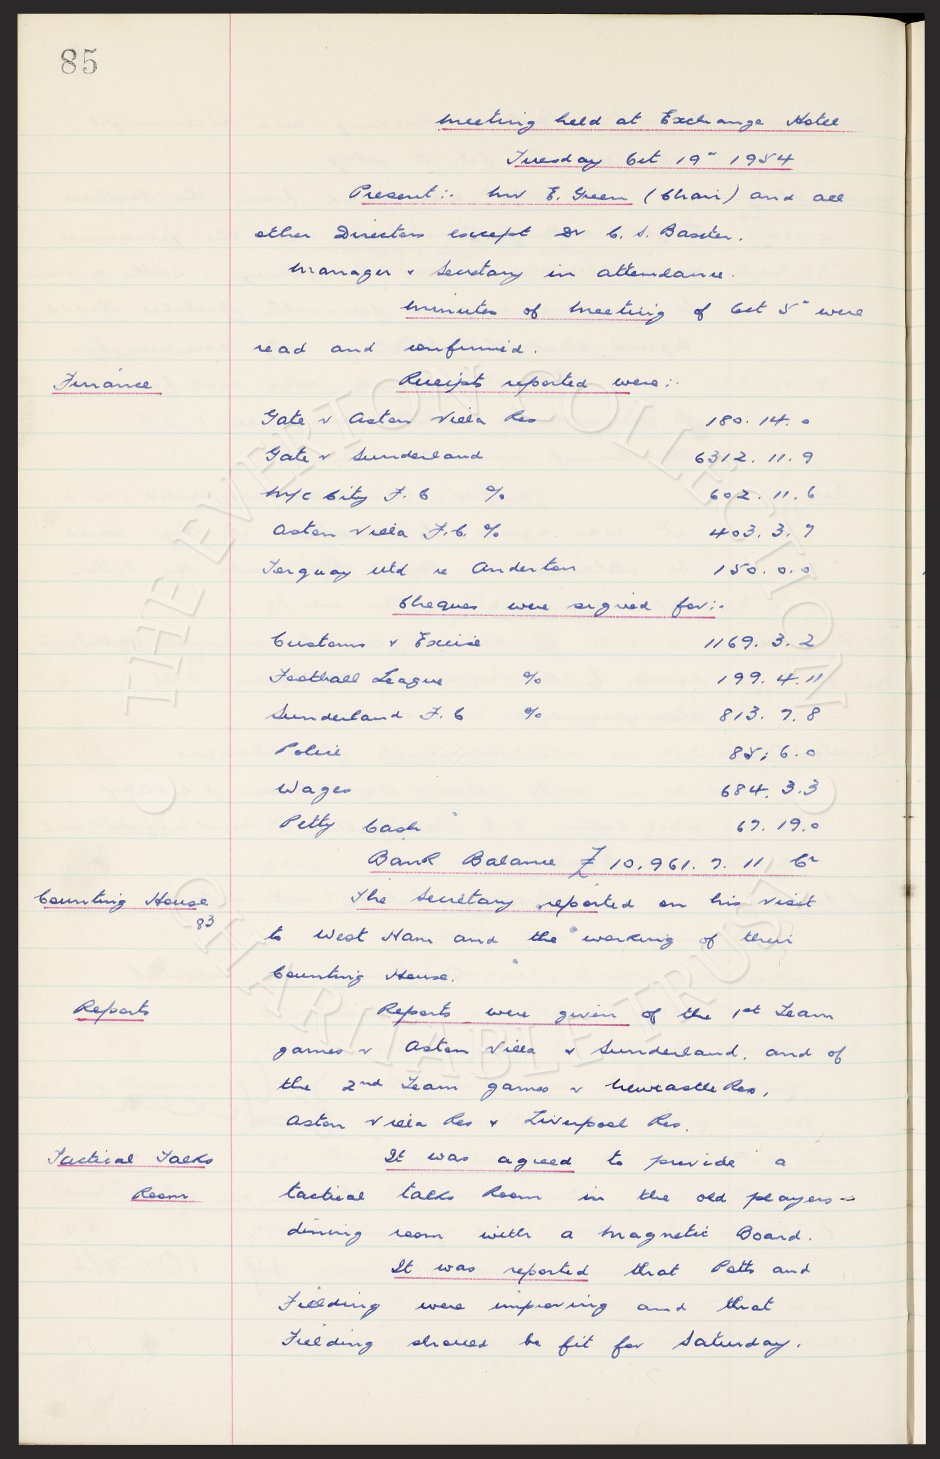 85
Meeting held at Exchange Hotel
Tuesday Oct 19" 1954
Present:- Mr E. Green (Chair) and all
other Directors except Dr C. S. Baxter.
Manager & Secretary in attendance.
Minutes of Meeting of Oct 5" were
read and confirmed.
Finance Receipts reported were:-
Gate v Aston Villa Res 180. 14. 0
Gate v Sunderland 6312. 11. 9
M/C City F. C % 602. 11. 6
Aston Villa F. C. % 403. 3. 7
Torquay Utd re Anderton 150. 0. 0
Cheques were signed for:-
Customs & Excise 1169. 3. 2
Football League % 199. 4. 11
Sunderland F. C % 813. 7. 8
Police 85. 6. 0
Wages 684. 3. 3
Petty Cash 67. 19. 0
Bank Balance £ 10,961. 7. 11 Cr
Counting House The Secretary reported on his visit
83
to West Ham and the working of their
Counting House.
Reports Reports were given of the 1st Team
games v Aston Villa & Sunderland, and of
the 2nd Team games v Newcastle Res,
Aston Villa Res & Liverpool Res.
Tactical Talks It was agreed to provide a
Room tactical talks Room in the old players
dining room with a Magnetic Board.
It was reported that Potts and
Fielding were improving and that
Fielding should be fit for Saturday.
THE EVERTON COLLECTION
CHARITABLE TRUST